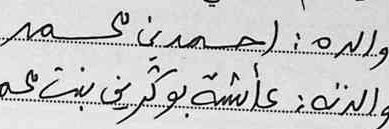 والده: احمد بن محمد
والدته: عائشة بوكرين بنت محمد